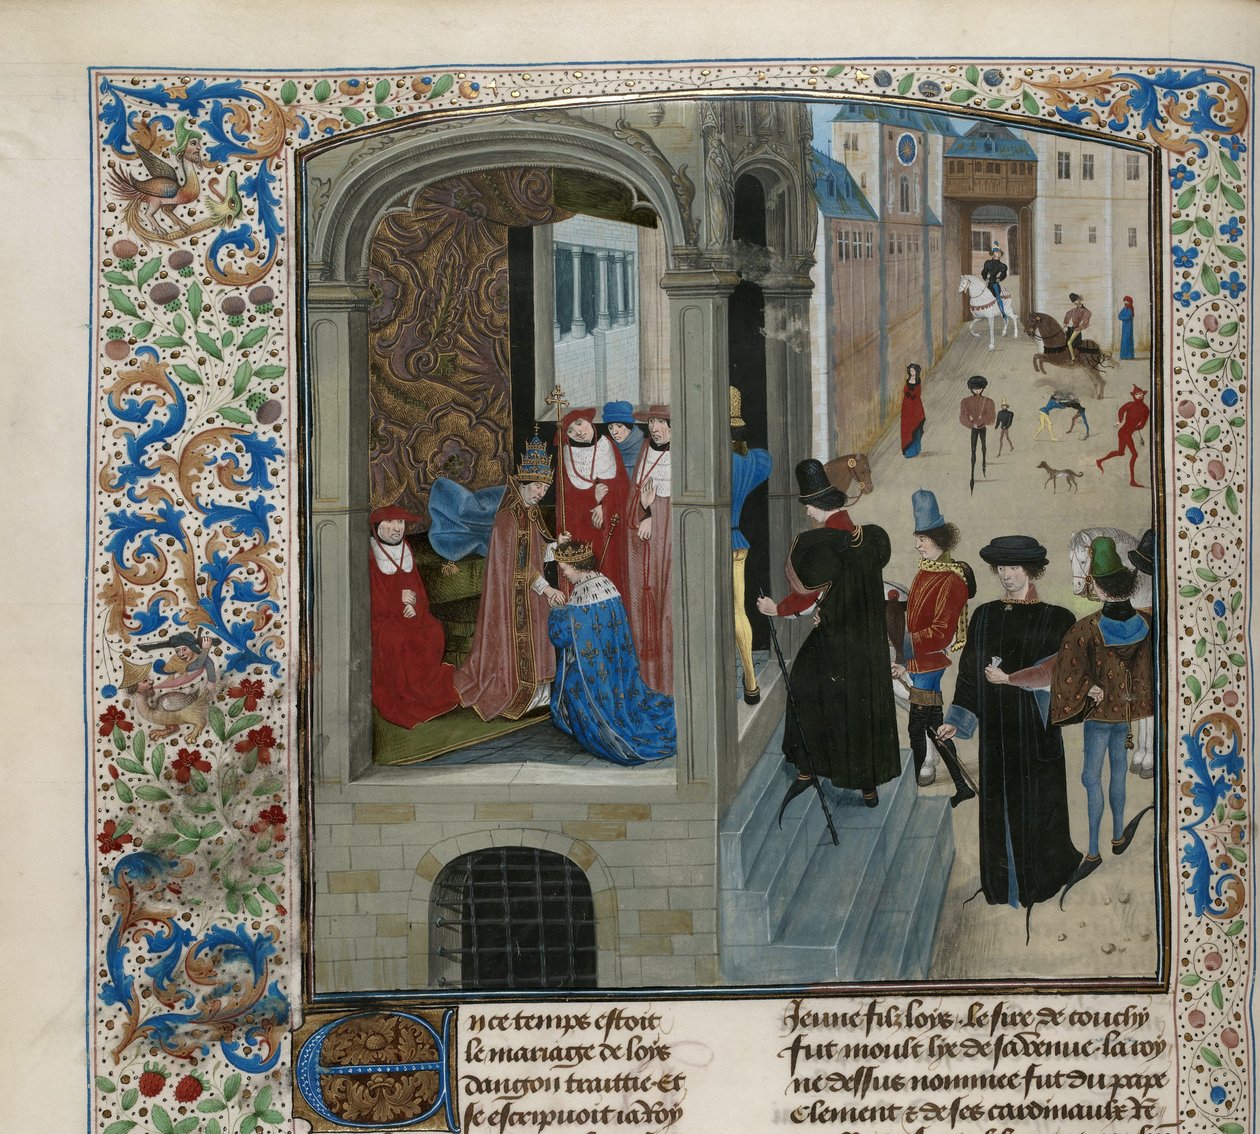 En ce temps estoit
le mariage de loys
dangou traittie. Et
se escripuoit la Roy
Jeune filz loys. le sire de couchy
fut moult lye de sa venue. la roy
ne dessus nommee fut du pape
Clement & de ses cardinaulx Re